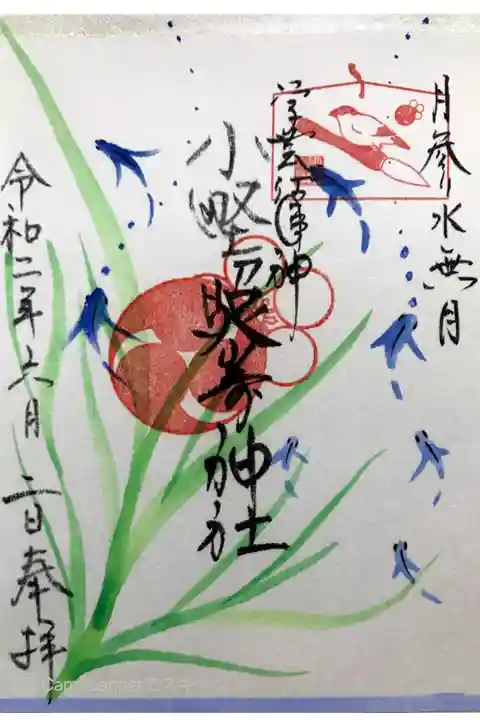 月参水無月
学芸 神
小野照崎神社
令和二年六月二日奉拝
CamScannerでスキャン